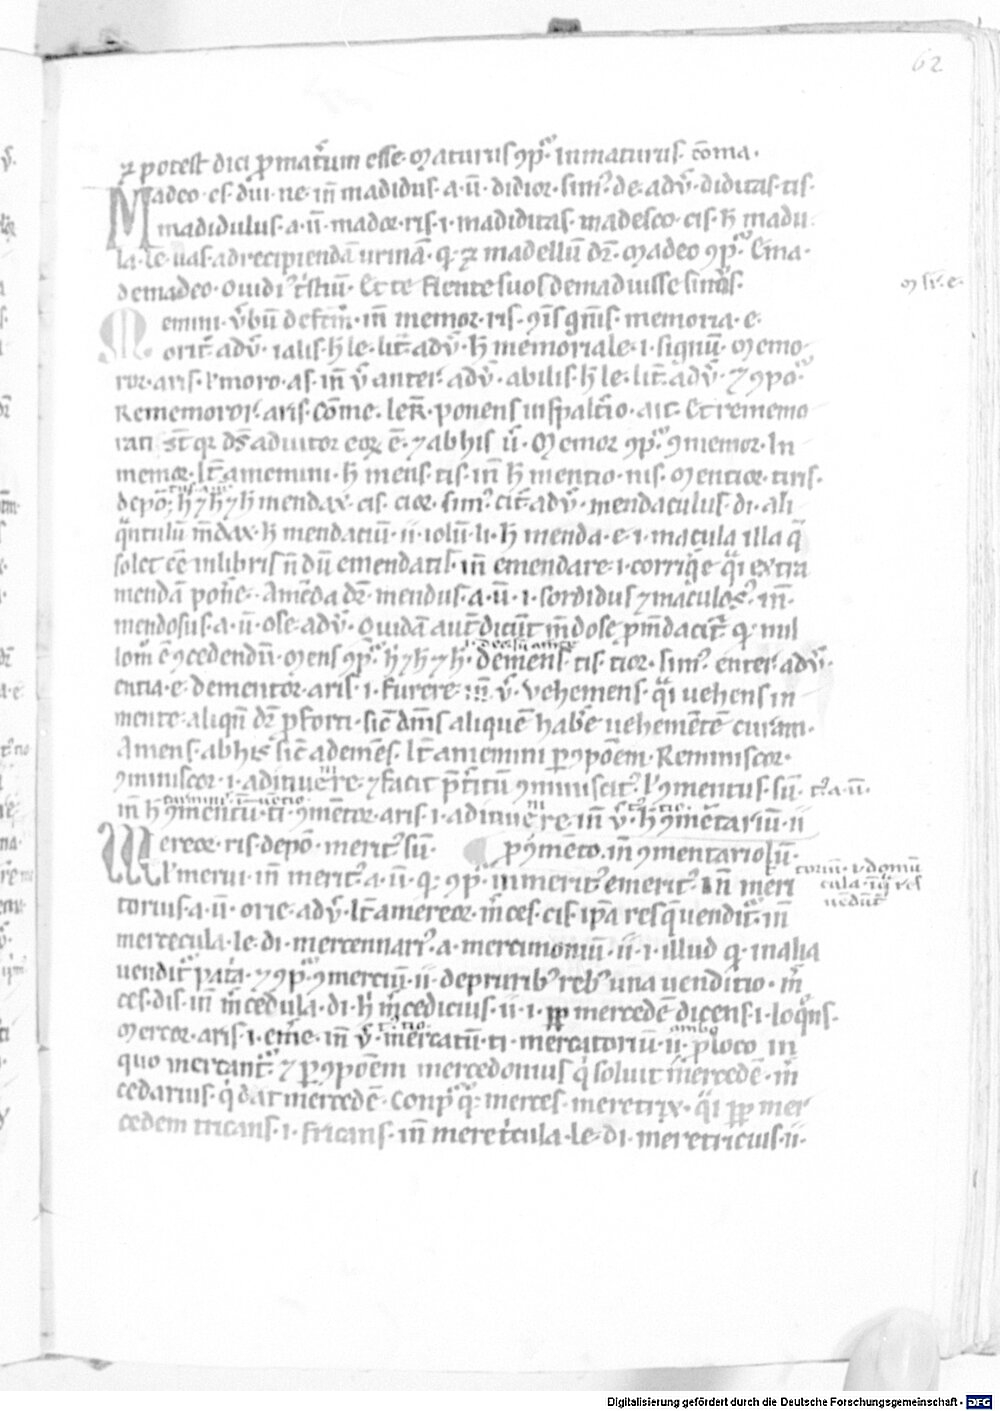 62
⁊ potest dici p̄ maťum esse. Maturus ꝯp̄. Inmaturus. c̄oma.
Madeo. es. dui. ne. iñ madidus. a. ū. didior. sim᷒. de. adv̄. diditas. tis.
madidulus. a. ū. mador. ris. i. madiditas. madesco. cis. h̄ madu
la. le. uas. ad recipiendā urinā. q. ⁊ madellū dr̄. Madeo ꝯp̄. Ema
demadeo. Ouidi᷒ t'stiū. Et te flente suos demaduisse sinus.
Memini. v̄bū defcm̄. iñ memor. ris. memoria. e.
orit᷒. adv̄. ialis. h̄ le. lit᷒. adv̄. h̄ memoriale. i. signū. Memo
ror. aris. l' moro. as. iñ v̄ anter. adv̄. abilis. h̄ le. lit᷒. adv̄. ⁊ ꝯpo᷒.
Rememoror. aris. Cōme. ponens in spaltio. ait. Et rememo
rati st̄ qr ds̄ adiutor eoꝝ ē. ⁊ ab his ū. Memor ꝯp̄. ꝯmemor. In
memor. It̄ a memini. h̄ mens. tis. iñ h̄ mentio. nis. Mentior. tiris.
depo᷒. h̄ ⁊ h̄ ⁊ h̄ mendax. cis. cior. sim᷒. cit᷒. adv̄. mendaculus. di. ali
q̄ntulū m̄dax. h̄ mendaciū. ii. iolū. li. h̄ menda. e. i. macula illa q̄
solet eē in libris n̄ dū emendatis. iñ emendare. i. corrig̓e q̄i extra
mendā pon̓e. Amēda dr̄. mendus. a. ū. i. sordidus ⁊ maculos᷒. iñ.
mendosus. a. ū. ose. adv̄. Quidā aut̄ dicūt m̄dose p̄ m̄dacit᷒. q. nul
lom̄ ē ꝯcedendū. Mens ꝯp̄. h̄ ⁊ h̄ ⁊ h̄. demens. tis. tior. sim᷒. enter. adv̄.
entia. e. dementor. aris. i. furere. iñ. v̄. Vehemens. q̄i uehens in
mente. aliqn̄ dr̄ p̄ forti. sic̄ dm̄s aliquē hab̓e uehemētē curam.
Amens. ab his sic̄ a demēs. It̄ a memini p̱ ꝯpōem. Reminiscor.
ꝯminiscor. i. adinuenire. ⁊ facit p̄titū ꝯminiscit᷒. l' ꝯmentus. sū. t᷒. a. ū.
iñ h̄ ꝯmentū. ti. ꝯmētor. aris. i. adinuenire. iñ v̄. h̄ ꝯmētariū. ii
Mereor. ris. depo᷒. merit᷒ sū. p̱ ꝯmēto. iñ ꝯmentariolū.
l' merui. iñ merit᷒. a. ū. q. ꝯp̄. inmerit᷒ emerit᷒. Iñ meri
torius. a. ū. orie. adv̄. It̄ a mereor. m̄ces. cis. ip̄a res q̄ uendit᷒. iñ
mercecula. le. di. mercennari᷒. a. mercimoniū. ii. i. illud q. in alia
uendit᷒ pata. ⁊ ꝯp̄. ꝯmerciū. ii. de pluribꝰ rebꝰ una uenditio. m̄
ces. dis. iñ m̄cedula. di. h̄ m̄cedicius. ii. i. ꝓp mercedē dicens. i. loq̄ns.
Mercor. aris. i. em̓e. iñ v̄. mercatū. ti. mercatoriū. ii. p̄ loco in
quo mercant᷒. ⁊ p̱ ꝯpōem mercedonius q̓ soluit mercedē. m̄
cedarius. q̓ dat mercedē. Conp̄ q. merces. meretrix. q̄i ꝓp mer
cedem tricans. i. fricans. iñ meret'cula. le. di. meretricius. ii.
toriū. i. domū
cula. i q̄ res
uēdūt᷒
Digitalisierung gefördert durch die Deutsche Forschungsgemeinschaft - DFG